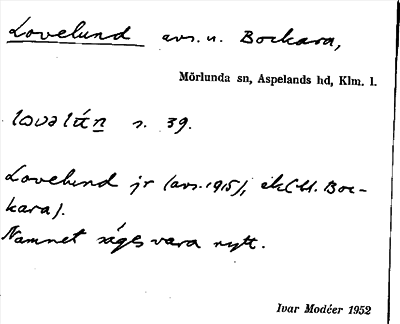 Lovelund avs. u. Bockara,
Mörlunda sn, Aspelands hd, Klm. l.
lovəlún s. 39.
Lovelund jr (avs. 1915), ek(M. Boc-
kara).
Namnet säges vara nytt.
Ivar Modéer 1952